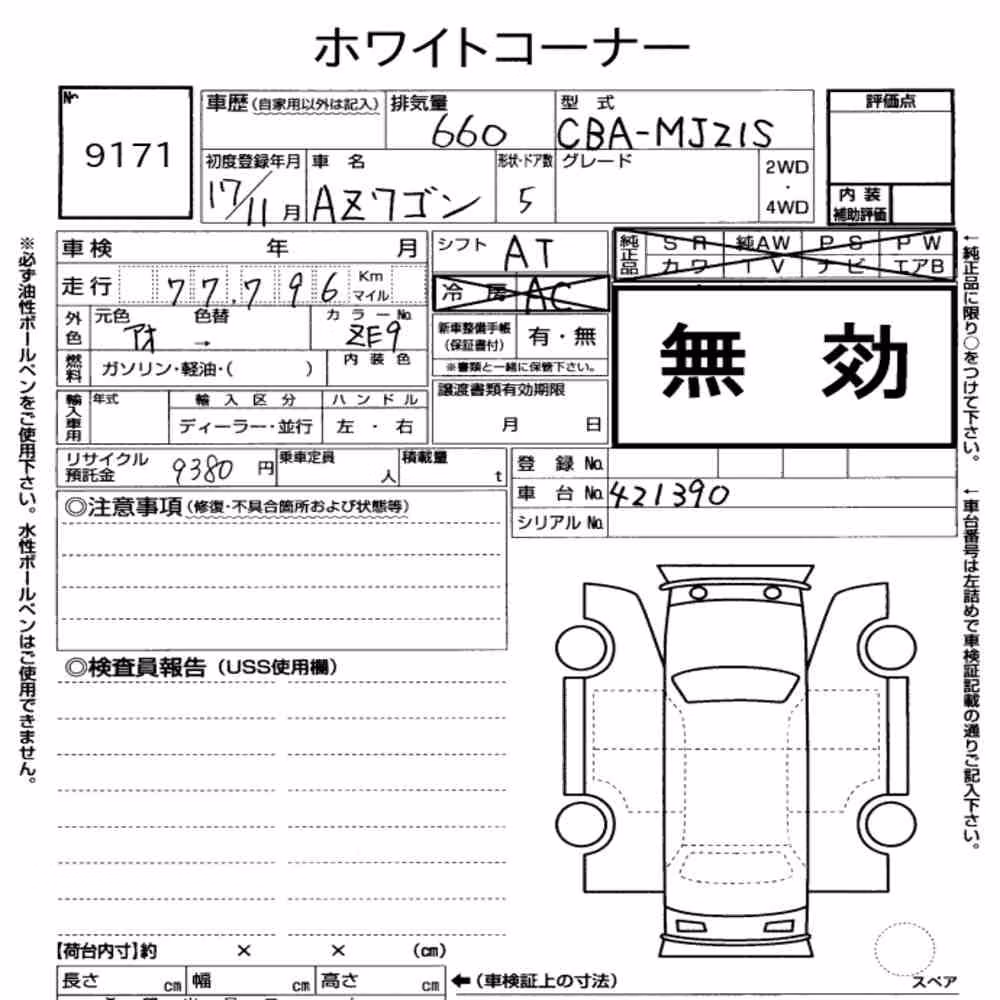 ホワイトコーナー
№
9171
車歴(自家用以外は記入)
排気量
660
型 式
CBA-MJ21S
評価点
初度登録年月
17/11月
車 名
AZワゴン
形状・ドア数
5
グレード
2WD
・
4WD
内 装
補助評価
車検 年 月
シフト
AT
純正品
SR 純AW PS PW
カワ TV ナビ エアB
走行 77,796 Km
マイル
冷 房 AC
外色
元色
アオ
色替
→
カラーNo.
ZE9
新車整備手帳
(保証書付)
有・無
※書類と一緒に保管下さい。
無 効
燃料
ガソリン・軽油・( )
内 装 色
譲渡書類有効期限
月 日
輸入車用
年式
輸 入 区 分
ディーラー・並行
ハ ン ド ル
左 ・ 右
リサイクル
預託金
9380 円
乗車定員
人
積載量
t
登 録 No.
車 台 No. 421390
シリアル No.
◎注意事項(修復・不具合箇所および状態等)
◎検査員報告(USS使用欄)
【荷台内寸】約 × × (cm)
長さ cm 幅 cm 高さ cm
←(車検証上の寸法)
スペア
※必ず油性ボールペンをご使用下さい。水性ボールペンはご使用できません。
←純正品に限り○をつけて下さい。
←車台番号は左詰めで車検証記載の通りご記入下さい。